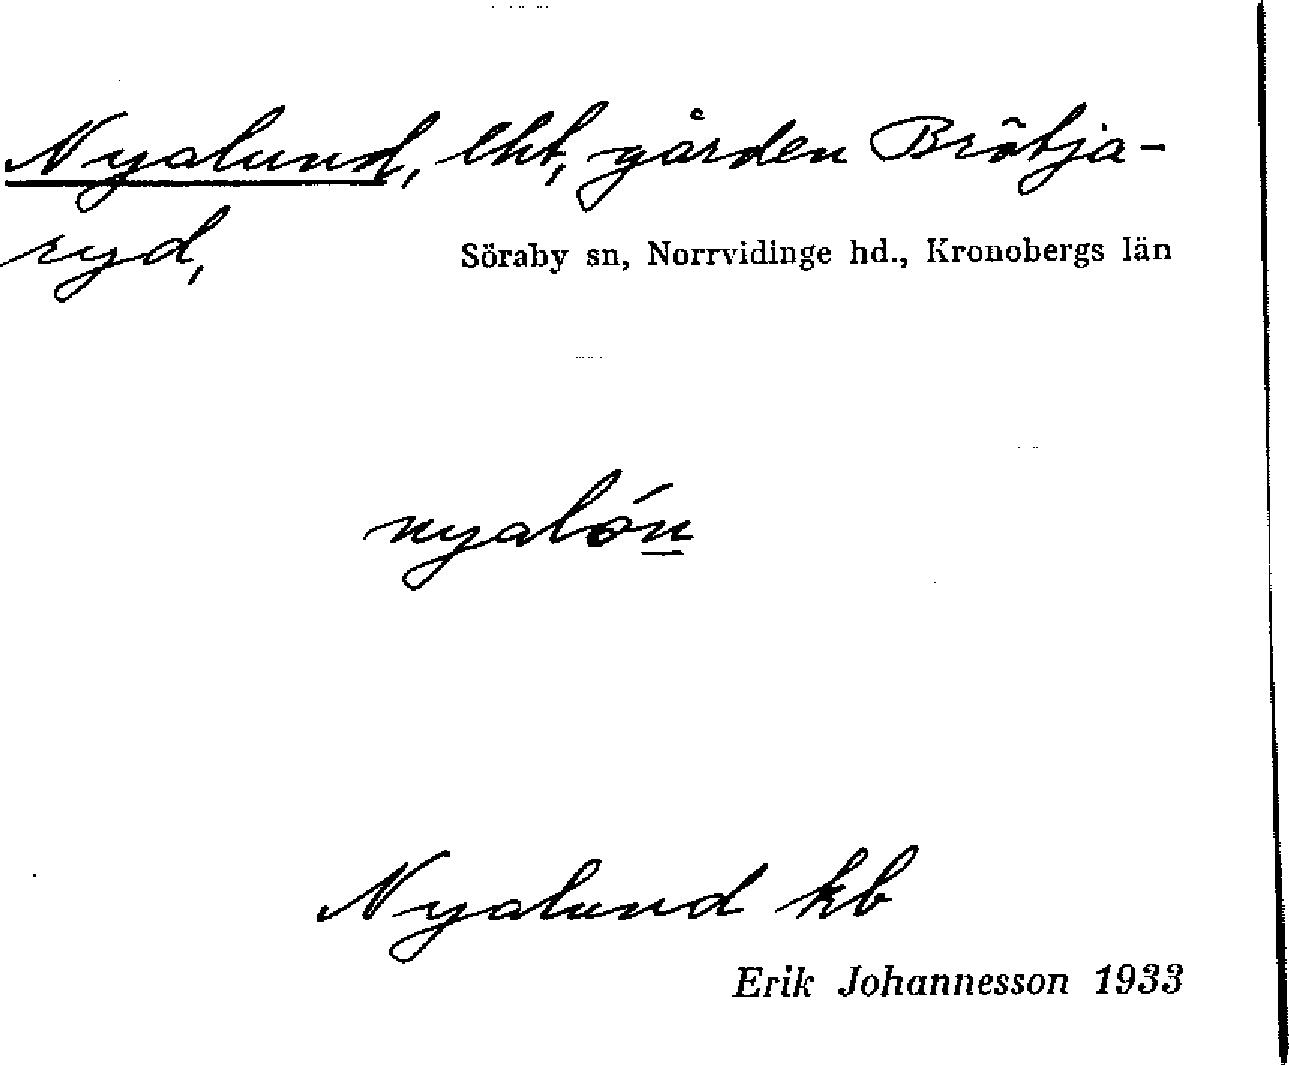 Nyalund, lht, gården Brötja-
ryd,
Söraby sn, Norrvidinge hd., Kronobergs län
nyalón
Nyalund kb
Erik Johannesson 1933